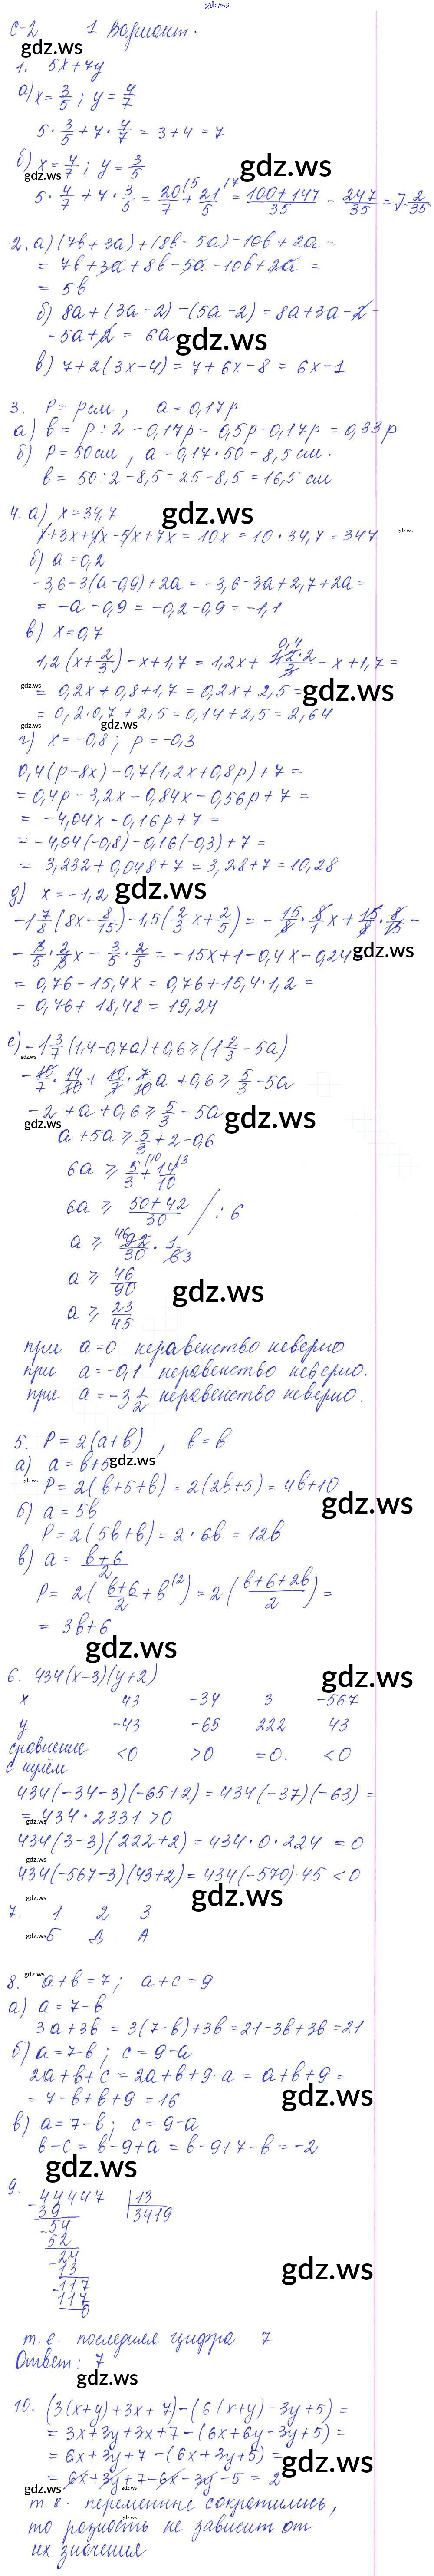 gdz.ws
С-2 1 Вариант.
gdz.ws
1. 5x+7y
а) x=3/5; y=4/7
5·3/5+7·4/7=3+4=7
б) x=4/7; y=3/5
gdz.ws gdz.ws
5·4/7+7·3/5=20/7(5+21/5(7=100+147/35=247/35=7 2/35
2. а) (7b+3a)+(8b-5a)-10b+2a=
=7b+3a+8b-5a-10b+2a=
=5b
б) 8a+(3a-2)-(5a-2)=8a+3a-2-
-5a+2=6a
gdz.ws
в) 7+2(3x-4)=7+6x-8=6x-1
3. P=p см, a=0,17p
а) b=p:2-0,17p=0,5p-0,17p=0,33p
б) P=50см, a=0,17·50=8,5 см.
b=50:2-8,5=25-8,5=16,5 см
4. а) x=34,7
gdz.ws
x+3x+4x-5x+7x=10x=10·34,7=347
gdz.ws
б) a=0,2
-3,6-3(a-0,9)+2a=-3,6-3a+2,7+2a=
=-a-0,9=-0,2-0,9=-1,1
в) x=0,7
1,2(x+2/3)-x+1,7=1,2x+0,4 1,2·2/3-x+1,7=
gdz.ws
=0,2x+0,8+1,7=0,2x+2,5=
gdz.ws
=0,2·0,7+2,5=0,14+2,5=2,64
gdz.ws gdz.ws
г) x=-0,8; p=-0,3
0,4(p-8x)-0,7(1,2x+0,8p)+7=
=0,4p-3,2x-0,84x-0,56p+7=
=-4,04x-0,16p+7=
=-4,04(-0,8)-0,16(-0,3)+7=
=3,232+0,048+7=3,28+7=10,28
д) x=-1,2
gdz.ws
-1 7/8(8x-8/15)-1,5(2/3x+2/5)=-15/8·8/1x+15/8·8/15-
-3/5·2/3x-3/5·2/5=-15x+1-0,4x-0,24
gdz.ws
=0,76-15,4x=0,76+15,4·1,2=
=0,76+18,48=19,24
е) -1 3/7(1,4-0,7a)+0,6≥(1 2/3-5a)
gdz.ws
-10/7·14/10+10/7·7/10a+0,6≥5/3-5a
-2+a+0,6≥5/3-5a
gdz.ws
gdz.ws
a+5a≥5/3+2-0,6
6a≥5/3(10+14/10(3
6a≥50+42/30 /:6
a≥46 92/30·1/6 3
a≥46/90
gdz.ws
a≥23/45
при a=0 неравенство неверно
при a=-0,1 неравенство неверно.
при a=-3 1/2 неравенство неверно.
5. P=2(a+b), b=b
а) a=b+5
gdz.ws
gdz.ws
P=2(b+5+b)=2(2b+5)=4b+10
gdz.ws
б) a=5b
P=2(5b+b)=2·6b=12b
в) a=b+6/2
P=2(b+6/2+b(2)=2(b+6+2b/2)=
=3b+6
gdz.ws
6. 434(x-3)(y+2)
gdz.ws
x 43 -34 3 -567
y -43 -65 222 43
сравнение с нулём <0 >0 =0. <0
434(-34-3)(-65+2)=434(-37)(-63)=
=434·2331>0
gdz.ws
434(3-3)(222+2)=434·0·224=0
gdz.ws
434(-567-3)(43+2)=434(-570)·45<0
gdz.ws
gdz.ws
7. 1 2 3
gdz.ws
Б В А
gdz.ws
8. a+b=7; a+c=9
а) a=7-b
3a+3b=3(7-b)+3b=21-3b+3b=21
б) a=7-b; c=9-a
2a+b+c=2a+b+9-a=a+b+9=
=7-b+b+9=16
gdz.ws
в) a=7-b; c=9-a
b-c=b-9+a=b-9+7-b=-2
gdz.ws
9. 44447 |13
-39 3419
-54
52
-24
13
-117
117
0
gdz.ws
т.е. последняя цифра 7
Ответ: 7
gdz.ws
10. (3(x+y)+3x+7)-(6(x+y)-3y+5)=
=3x+3y+3x+7-(6x+6y-3y+5)=
=6x+3y+7-(6x+3y+5)=
gdz.ws
=6x+3y+7-6x-3y-5=2
gdz.ws gdz.ws
т.к. переменные сократились,
gdz.ws
то разность не зависит от
их значения
gdz.ws gdz.ws